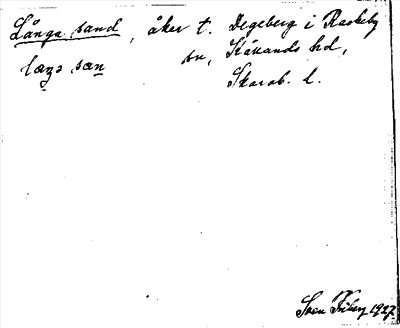 Långa sand, åker t. Degeberg i Rackeby
sn, Kållands hd,
læŋa san
Skarab. l.
Sven Friberg 1927.